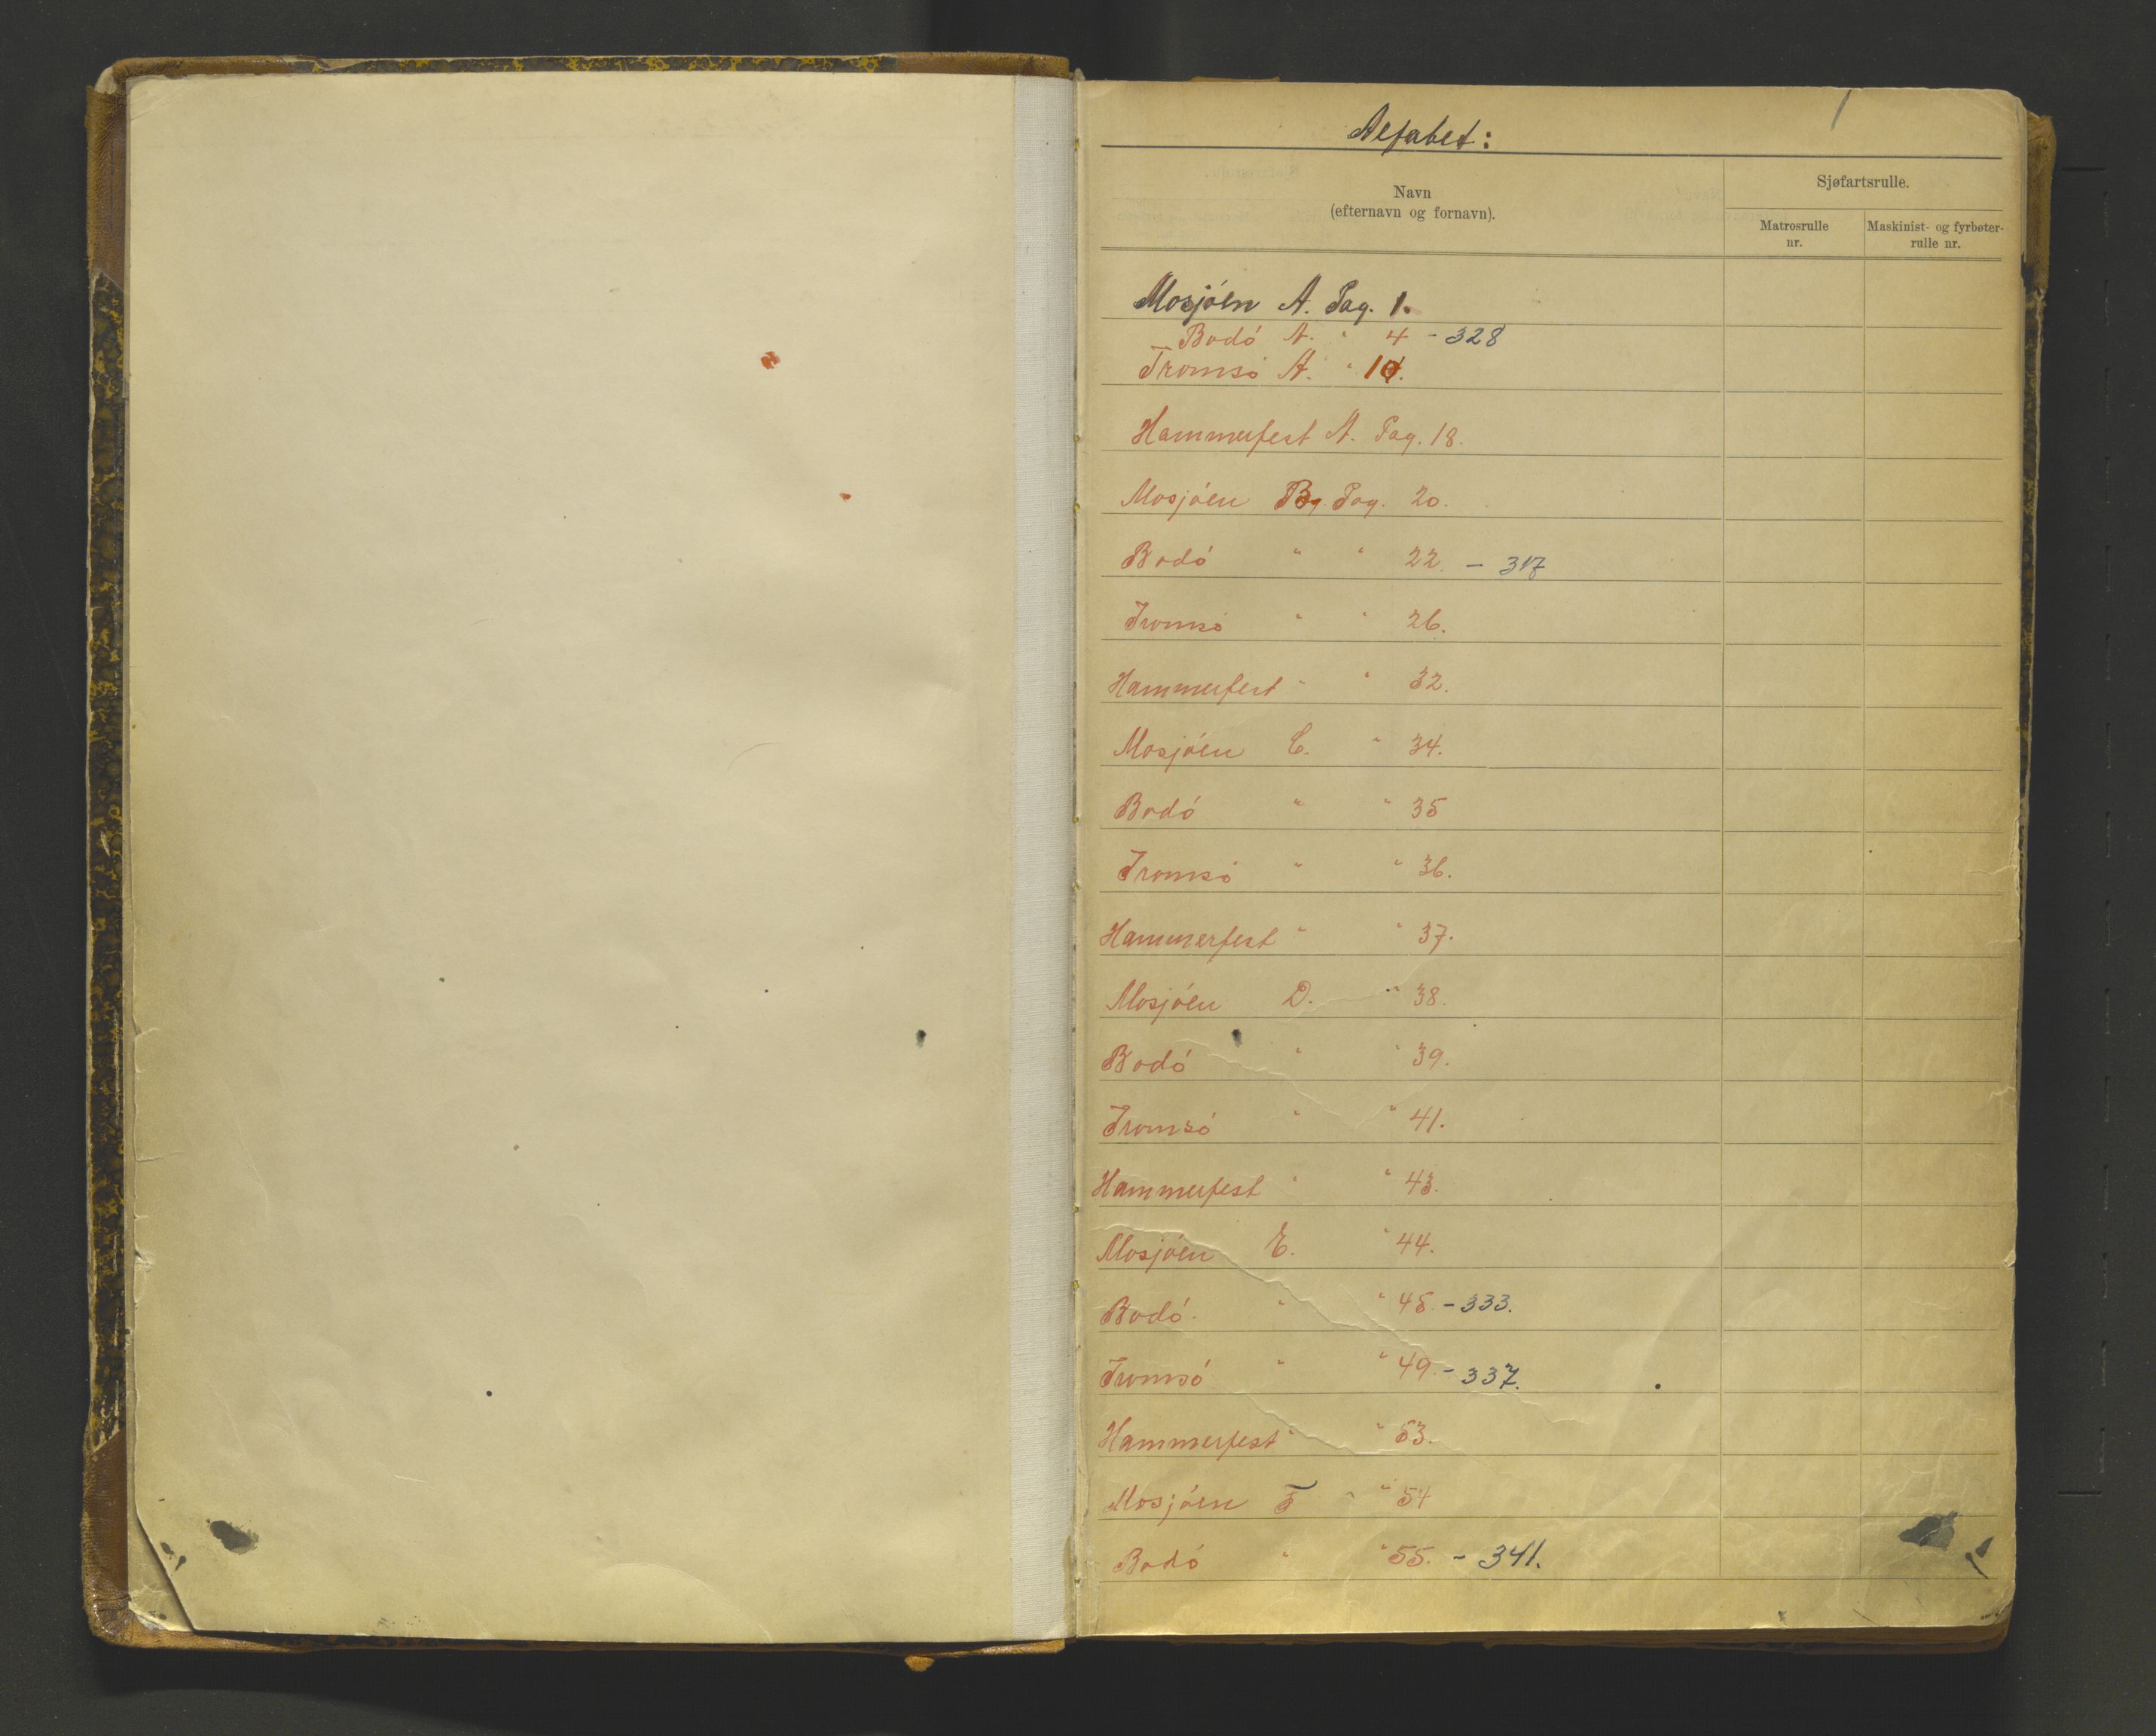 1
Alfabet:
Navn
(efternavn og fornavn).
Sjøfartsrulle.
Matrosrulle
nr.
Maskinist- og fyrbøter-
rulle nr.
Mosjóen A. Pag. 1.
Bodó A. " 4 - 328
Tromsó A. " 10.
Hammerfest A. Pag. 18.
Mosjóen B. Pag. 20.
Bodó " " 22. - 317
Tromsó " " 26.
Hammerfest " " 32.
Mosjóen C. " 34.
Bodó " " 35
Tromsó " " 36.
Hammerfest " " 37.
Mosjóen D. " 38.
Bodó " " 39.
Tromsó " " 41.
Hammerfest " " 43.
Mosjóen E. " 44.
Bodó " " 45. - 333.
Tromsó " " 49. - 337.
Hammerfest " " 53.
Mosjóen F " " 54
Bodó " " 55. - 341.